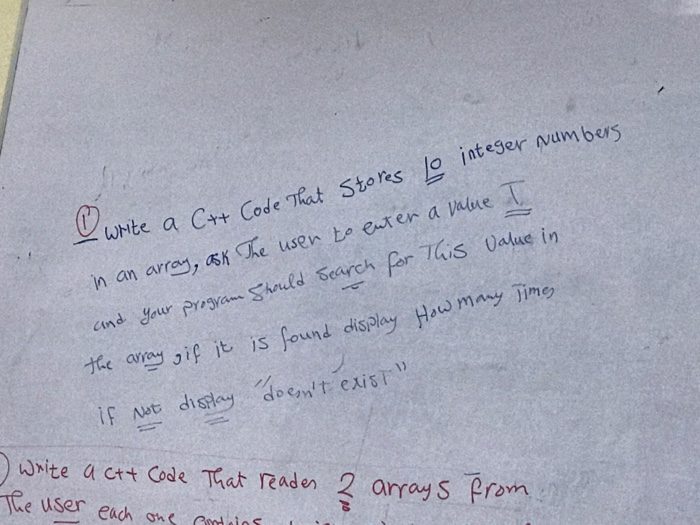 ① write a C++ Code That Stores 10 integer numbers
in an array, ask The user to enter a value I
and your program should search for This value in
the array, if it is found display How many Times
if Not display "doesn't exist"
) Write a C++ Code That reades 2 arrays from
The user each one contains